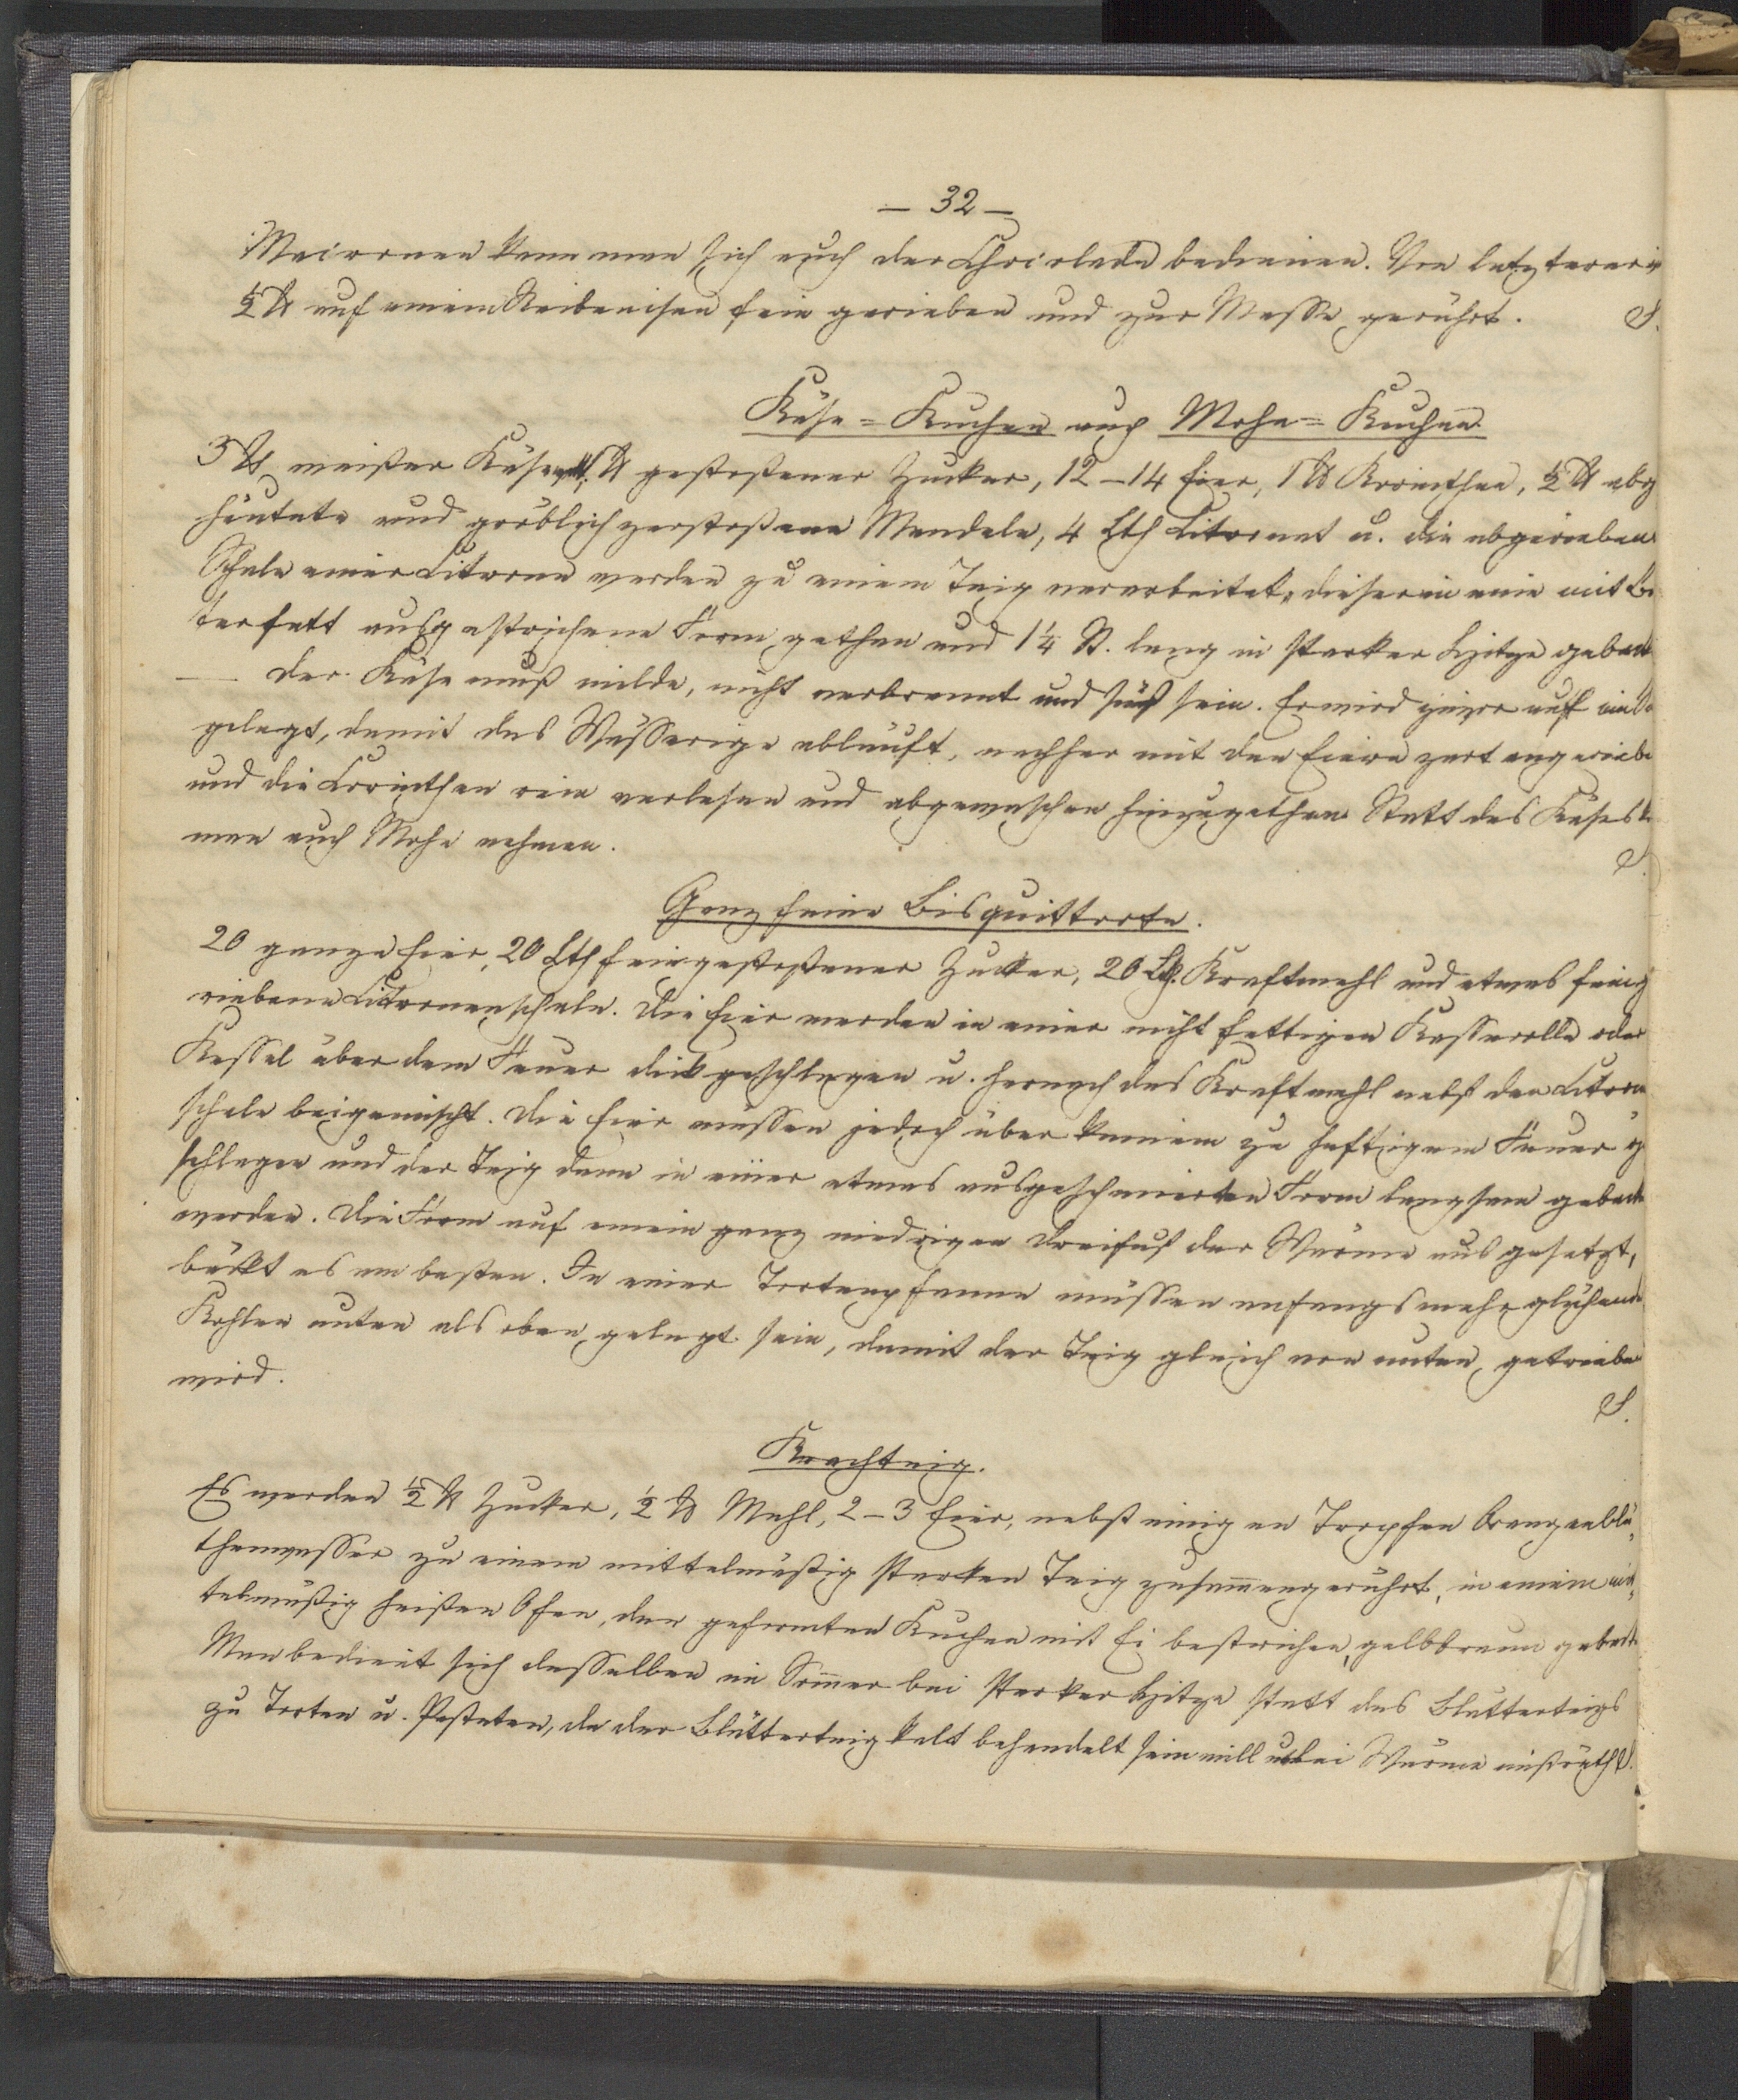 — 32 —
Maironen kann man sich auch der Chocolade bedienen. Von letzterer
½ ℔ auf einem Reibeisen fein gerieben und zur Masse gerührt. S.
Käse = Kuchen auch Mohn = Kuchen.
3 ℔ weißer Käse, ℔ gestoßener Zucker, 12 – 14 Eier, 1 ℔ Korinthen, ½ ℔ abg
häutete und gröblich zerstoßene Mandeln, 4 Lth Citronat u. die abgerieben
Schale einer Citrone werden zu einem Teig verarbeitet, dieser in eine mit But
terfett ausgestrichene Form gethan und 1 ¼ St. lang in starker Hitze geback
— Der Käse muß milde, nicht verbrannt und süß sein. Er wird zuvor auf ein
gelegt, damit das Wässerige abläuft, nachher mit den Eiern zart angeriebe
und die Corinthen rein verlesen und abgewaschen hinzugethan. Statt des Käses
man auch Mohn nehmen. S.
Ganz feine Bisquittorte.
20 ganze Eier, 20 Lth fein gestoßener Zucker, 20 Lth. Kraftmehl und etwas feing
riebene Citronenschale. Die Eier werden in einer nicht fettigen Kasserolle oder
Kessel über dem Feuer dick geschlagen u. hernach das Kraftmehl nebst der Citron
schale beigemischt. Die Eier müssen jedoch über keinem zu heftigem Feuer g
schlagen und der Teig dann in einer etwas ausgeschmierten Form langsam geback
werden. Die Form auf einem ganz niedrigen Dreifuß der Wärme aus gesetzt,
bäckt es am besten. In einer Tortenpfanne müssen anfangs mehr glühend
Kohlen unten als oben gelegt sein, damit der Teig gleich von unten getriebe
wird. S.
Krachteig.
Es werden ½ ℔ Zucker, ½ ℔ Mehl, 2 – 3 Eier, nebst einigen Tropfen Orangenblü-
thenwasser zu einem mittelmäßig starken Teig zusammengerührt, in einem mit-
telmäßig heißen Ofen, den geformten Kuchen mit Ei bestrichen, gelbbraun geback
Man bedient sich desselben im Sommer bei starker Hitze statt des Blätterteigs
zu Torten u. Pasteten, da der Blätterteig kalt behandelt sein will u. bei Wärme mißräth. S.